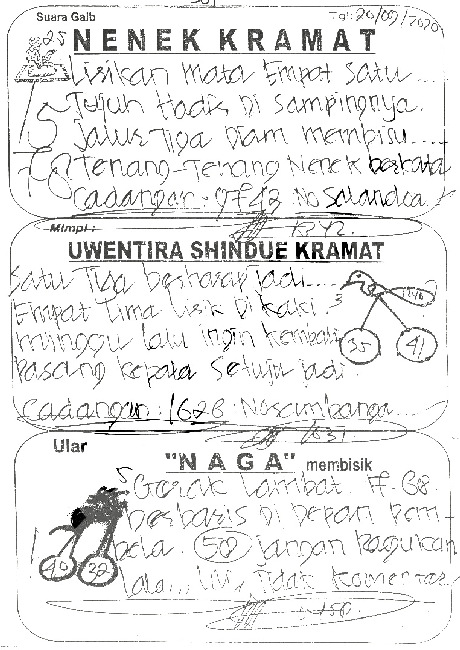 Suara Gaib
Tgl: 20/09/2020
25
NENEK KRAMAT
Lisikan Mata Empat Satu....
Tujuh Hadis Di Sampingnya.
Jalus Tiga Diam membisu.....
Tenang-Tenang Nenek berkata
Cadangan: 9743 No
15
78
Mimpi:
UWENTIRA SHINDUE KRAMAT
Satu Tiga berharap jadi....
Empat Lima Lisik Di kaki.
minggu lalu ingin kembali
pasang kepala Setuju jadi
Cadangan: 1628
3
35
41
Ular
"NAGA" membisik
5
Gerak Lambat
berbaris Di Depan Pem-
bela. 58 Jangan Ragukan
Tidak Komentar
40
32